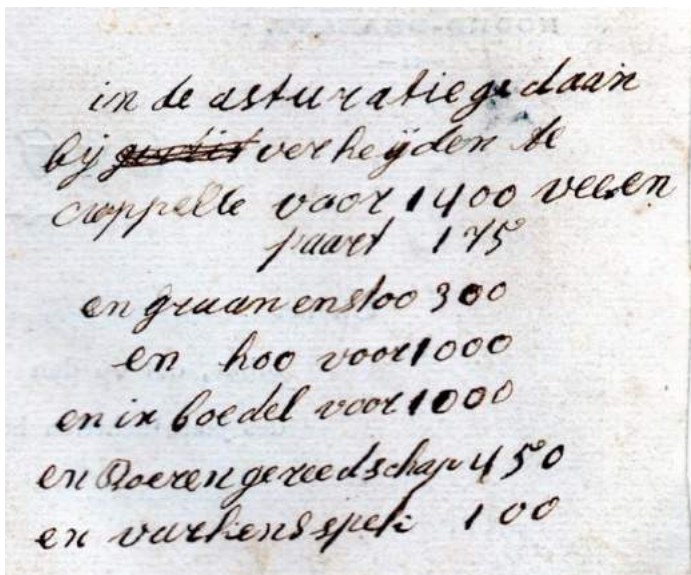 in de asturatie gedaan
bij verheijden te
cappelle voor 1400 vee en
paart 175
en graan en stoo 300
en hoo voor 1000
en in boedel voor 1000
en Boeren gereedschap 450
en varkens spek 100